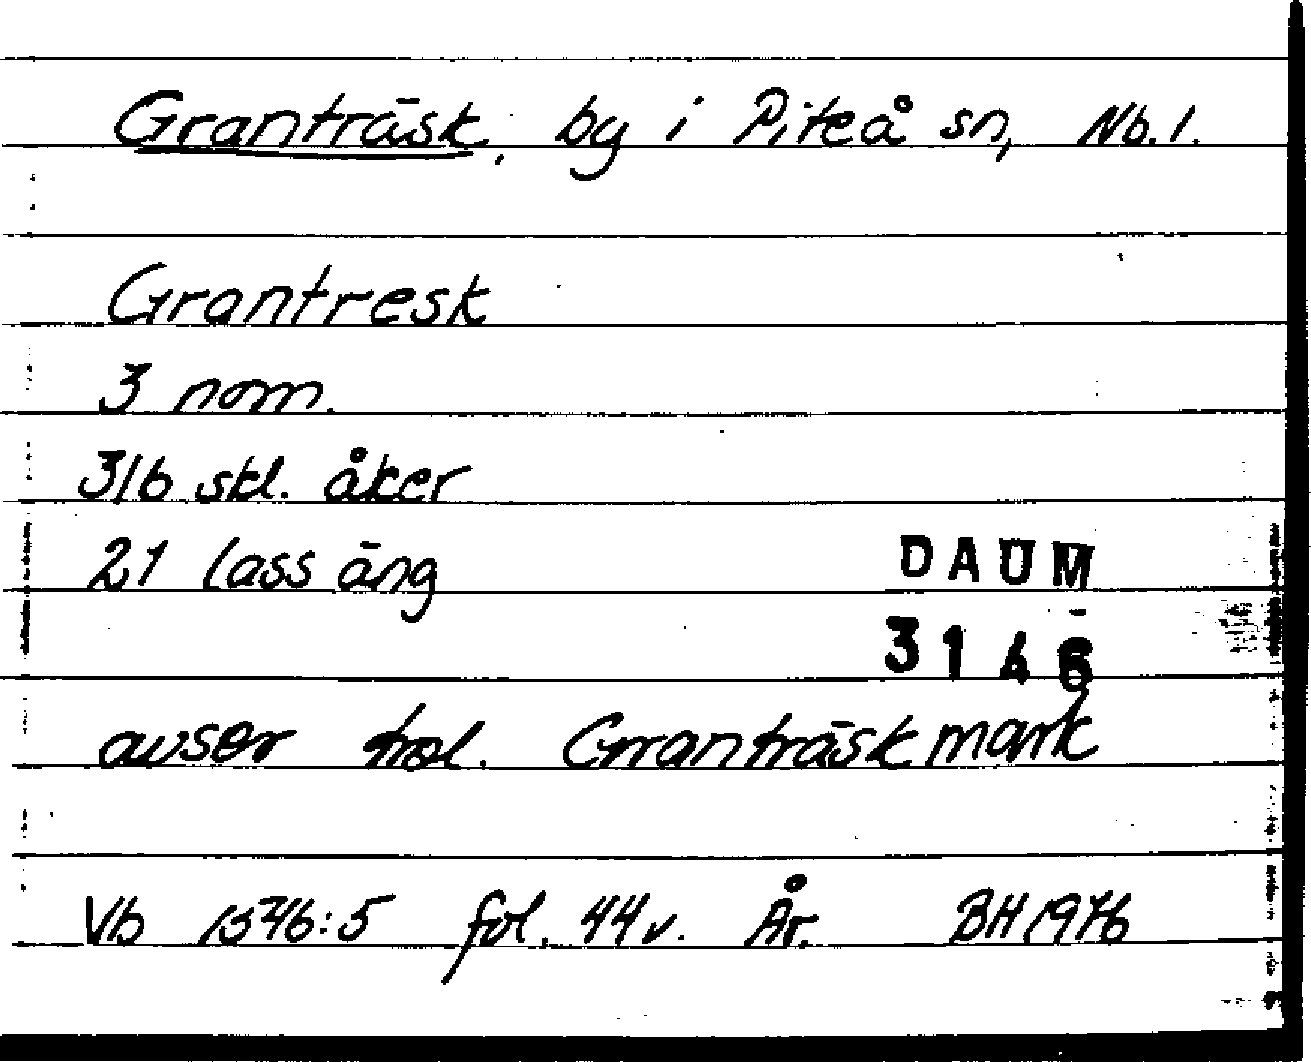 Granträsk, by i Piteå sn, Nb. l.
Grantresk
3 nom.
3/6 skl. åker
21 lass äng
DAUM
3146
avser trol. Granträskmark
Vb 1546:5 fol. 44 v. År. BH 1976